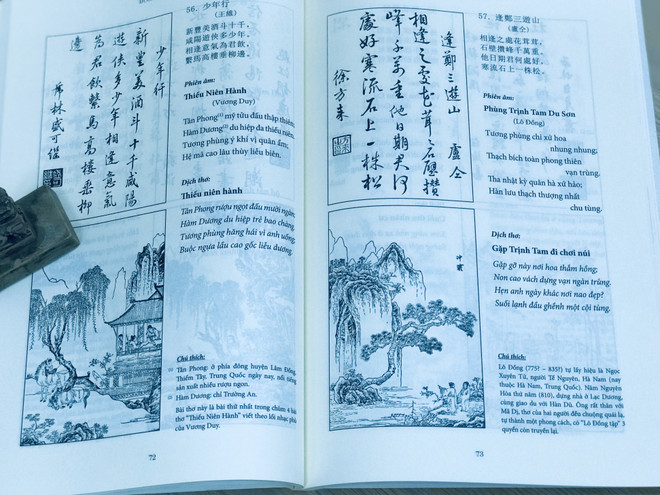 56. 少年行
(王維)
新豐美酒斗十千,
咸陽遊俠多少年。
相逢意氣為君飲,
繫馬高樓垂柳邊。
Phiên âm:
Thiếu Niên Hành
(Vương Duy)
Tân Phong⁽¹⁾ mỹ tửu đấu thập thiên,
Hàm Dương⁽²⁾ du hiệp đa thiếu niên.
Tương phùng ý khí vị quân ẩm,
Hệ mã cao lâu thùy liễu biên.
Dịch thơ:
Thiếu niên hành
Tân Phong rượu ngọt đấu mười ngàn,
Hàm Dương du hiệp trẻ bao chàng.
Tương phùng hăng hái vì anh uống,
Buộc ngựa lầu cao gốc liễu đường.
Chú thích:
Tân Phong: ở phía đông huyện Lâm Đồng,
Thiểm Tây, Trung Quốc ngày nay, nổi tiếng
sản xuất nhiều rượu ngon.
Hàm Dương: chỉ Trường An.
Bài thơ này là bài thứ nhất trong chùm 4 bài
thơ "Thiếu Niên Hành" viết theo lối nhạc phủ
của Vương Duy.
少年行
新豐美酒斗十千咸陽
遊俠多少年相逢意氣
為君飲繫馬高樓垂柳
邊
席林盛可繼
72
57. 逢鄭三遊山
(盧仝)
相逢之處花茸茸,
石壁攢峰千萬重。
他日期君何處好,
寒流石上一株松。
Phiên âm:
Phùng Trịnh Tam Du Sơn
(Lô Đồng)
Tương phùng chi xứ hoa
nhung nhung;
Thạch bích toàn phong thiên
vạn trùng.
Tha nhật kỳ quân hà xứ hảo;
Hàn lưu thạch thượng nhất
chu tùng.
Dịch thơ:
Gặp Trịnh Tam đi chơi núi
Gặp gỡ này nơi hoa thắm hồng;
Non cao vách dựng vạn ngàn trùng.
Hẹn anh ngày khác nơi nao đẹp?
Suối lạnh đầu ghềnh một cội tùng.
Chú thích:
Lô Đồng (775? – 835?) tự lấy hiệu là Ngọc
Xuyên Tử, người Tế Nguyên, Hà Nam (nay
thuộc Hà Nam, Trung Quốc). Năm Nguyên
Hòa thứ năm (810), dựng nhà ở Lạc Dương,
cùng giao du với Hàn Dũ. Ông rất thân với
Mã Dị, thơ của hai người đều chuộng quái lạ,
tự thành một phong cách, có "Lô Đồng tập" 3
quyển còn truyền lại.
逢鄭三遊山 盧仝
相逢之處花茸茸石壁攢
峰千萬重他日期君何
處好寒流石上一株松
徐方来
73